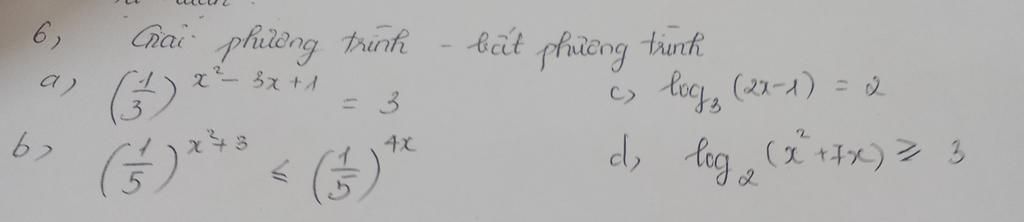 6, Giải phương trình - bất phương trình
a, (1/3)^(x²-3x+1) = 3
c, log₃(2x-1) = 2
b, (1/5)^(x²+3) ≤ (1/5)^(4x)
d, log₂(x²+7x) ≥ 3